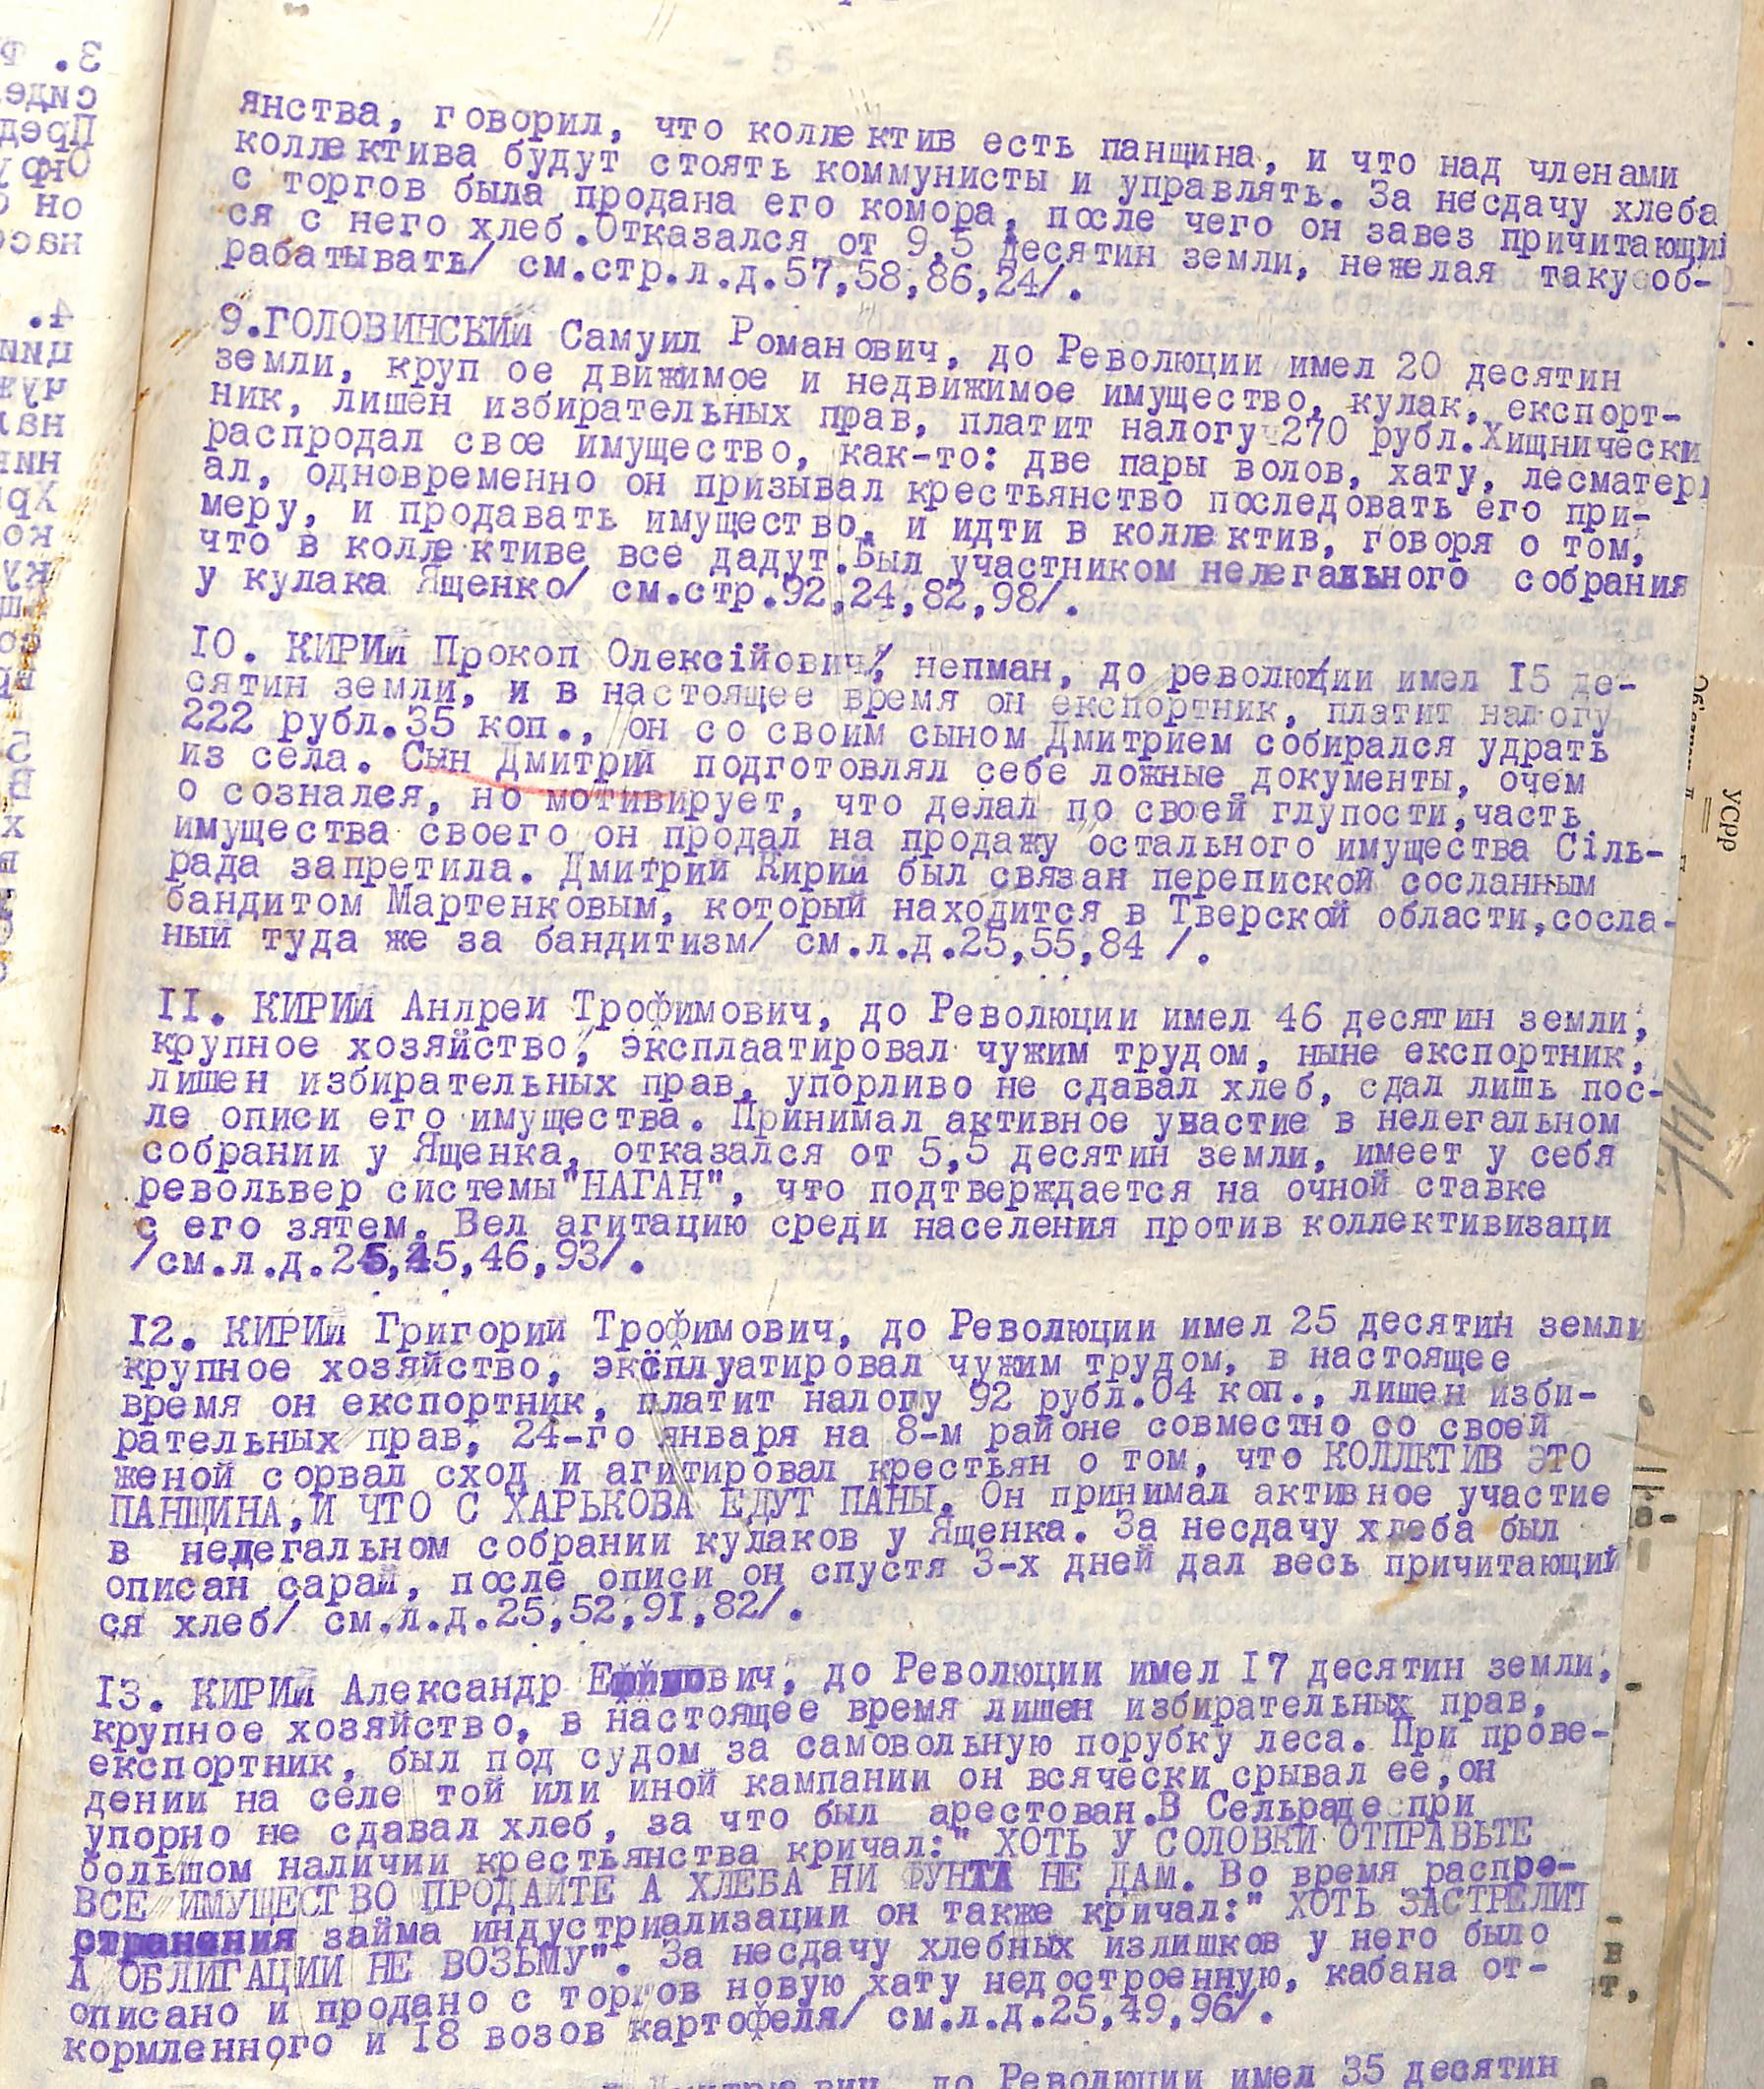 - 5 -
янства, говорил, что коллектив есть панщина, и что над членами
коллектива будут стоять коммунисты и управлять. За несдачу хлеба
с торгов была продана его комора, после чего он завез причитающий
ся с него хлеб.Отказался от 9,5 десятин земли, нежелая таку об-
рабатывать/ см.стр.л.д.57,58,86,24/.
9.ГОЛОВИНСКИй Самуил Романович, до Революции имел 20 десятин
земли, круп ое движимое и недвижимое имущество, кулак, експорт-
ник, лишен избирательных прав, платит налогу 270 рубл.Хищнически
распродал свое имущество, как-то: две пары волов, хату, лесматери
ал, одновременно он призывал крестьянство последовать его при-
меру, и продавать имущество, и идти в коллектив, говоря о том,
что в коллективе все дадут.Был участником нелегального собрания
у кулака Ященко/ см.стр.92,24,82,98/.
10. КИРИй Прокоп Олексійович, непман, до революции имел 15 де-
сятин земли, и в настоящее время он експортник, платит налогу
222 рубл.35 коп., он со своим сыном Дмитрием собирался удрать
из села. Сын Дмитрий подготовлял себе ложные документы, очем
о сознался, но мотивирует, что делал по своей глупости,часть
имущества своего он продал на продажу остального имущества Сіль-
рада запретила. Дмитрий Кирий был связан перепиской сосланным
бандитом Мартенковым, который находится в Тверской области,сосла-
ный туда же за бандитизм/ см.л.д.25,55,84 /.
11. КИРИй Андреи Трофимович, до Революции имел 46 десятин земли,
крупное хозяйство, эксплаатировал чужим трудом, ныне експортник,
лишен избирательных прав, упорливо не сдавал хлеб, сдал лишь пос-
ле описи его имущества. Принимал активное участие в нелегальном
собрании у Ященка, отказался от 5,5 десятин земли, имеет у себя
револьвер системы"НАГАН", что подтверждается на очной ставке
с его зятем. Вел агитацию среди населения против коллективизаци
/см.л.д.25,45,46,93/.
12. КИРИй Григорий Трофимович, до Революции имел 25 десятин земли
крупное хозяйство, эксплуатировал чужим трудом, в настоящее
время он експортник, платит налогу 92 рубл.04 коп., лишен изби-
рательных прав, 24-го января на 8-м районе совместно со своей
женой сорвал сход и агитировал крестьян о том, что КОЛЛКТИВ ЭТО
ПАНЩИНА,И ЧТО С ХАРЬКОВА ЕДУТ ПАНЫ. Он принимал активное участие
в недегальном собрании кулаков у Ященка. За несдачу хлеба был
описан сарай, после описи он спустя 3-х дней дал весь причитающий
ся хлеб/ см.л.д.25,52,91,82/.
13. КИРИй Александр Ефимович, до Революции имел 17 десятин земли,
крупное хозяйство, в настоящее время лишен избирательных прав,
експортник, был под судом за самовольную порубку леса. При прове-
дении на селе той или иной кампании он всячески срывал ее,он
упорно не сдавал хлеб, за что был арестован.В Сельраде при
большом наличии крестьянства кричал:" ХОТЬ У СОЛОВКИ ОТПРАВЬТЕ
ВСЕ ИМУЩЕСТВО ПРОДАЙТЕ А ХЛЕБА НИ ФУНТА НЕ ДАМ. Во время распро-
странения займа индустриализации он также кричал:" ХОТЬ ЗАСТРЕЛИТ
А ОБЛИГАЦИИ НЕ ВОЗЬМУ". За несдачу хлебных излишков у него было
описано и продано с торгов новую хату недостроенную, кабана от-
кормленного и 18 возов картофеля/ см.л.д.25,49,96/.
до Революции имел 35 десятин
УСРР